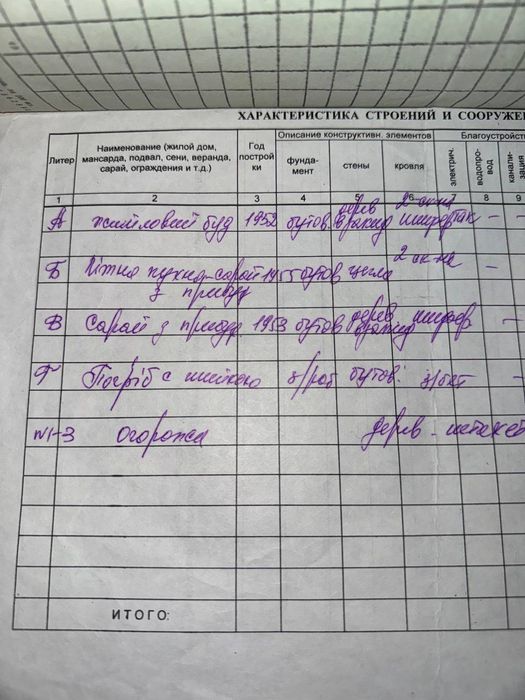 ХАРАКТЕРИСТИКА СТРОЕНИЙ И СООРУЖЕ
Литер
Наименование (жилой дом, мансарда, подвал, сени, веранда, сарай, ограждения и т.д.)
Год построй ки
Описание конструктивн. элементов
фунда-мент
стены
кровля
Благоустройст
электрич.
водопро-вод
канали-зация
1 2 3 4 5 6 7 8 9
А житловий буд 1952 бутов дерев 2 ск-на так - -
Б Літню кухню-сарай 1955 бутов цегла 2 ск-на -
з прибуд
В Сарай з прибуд. 1953 бутов дерев шифер -
Г Погріб с шийкою бутов. -
N1-3 Огорожа дерев - штахет
ИТОГО: